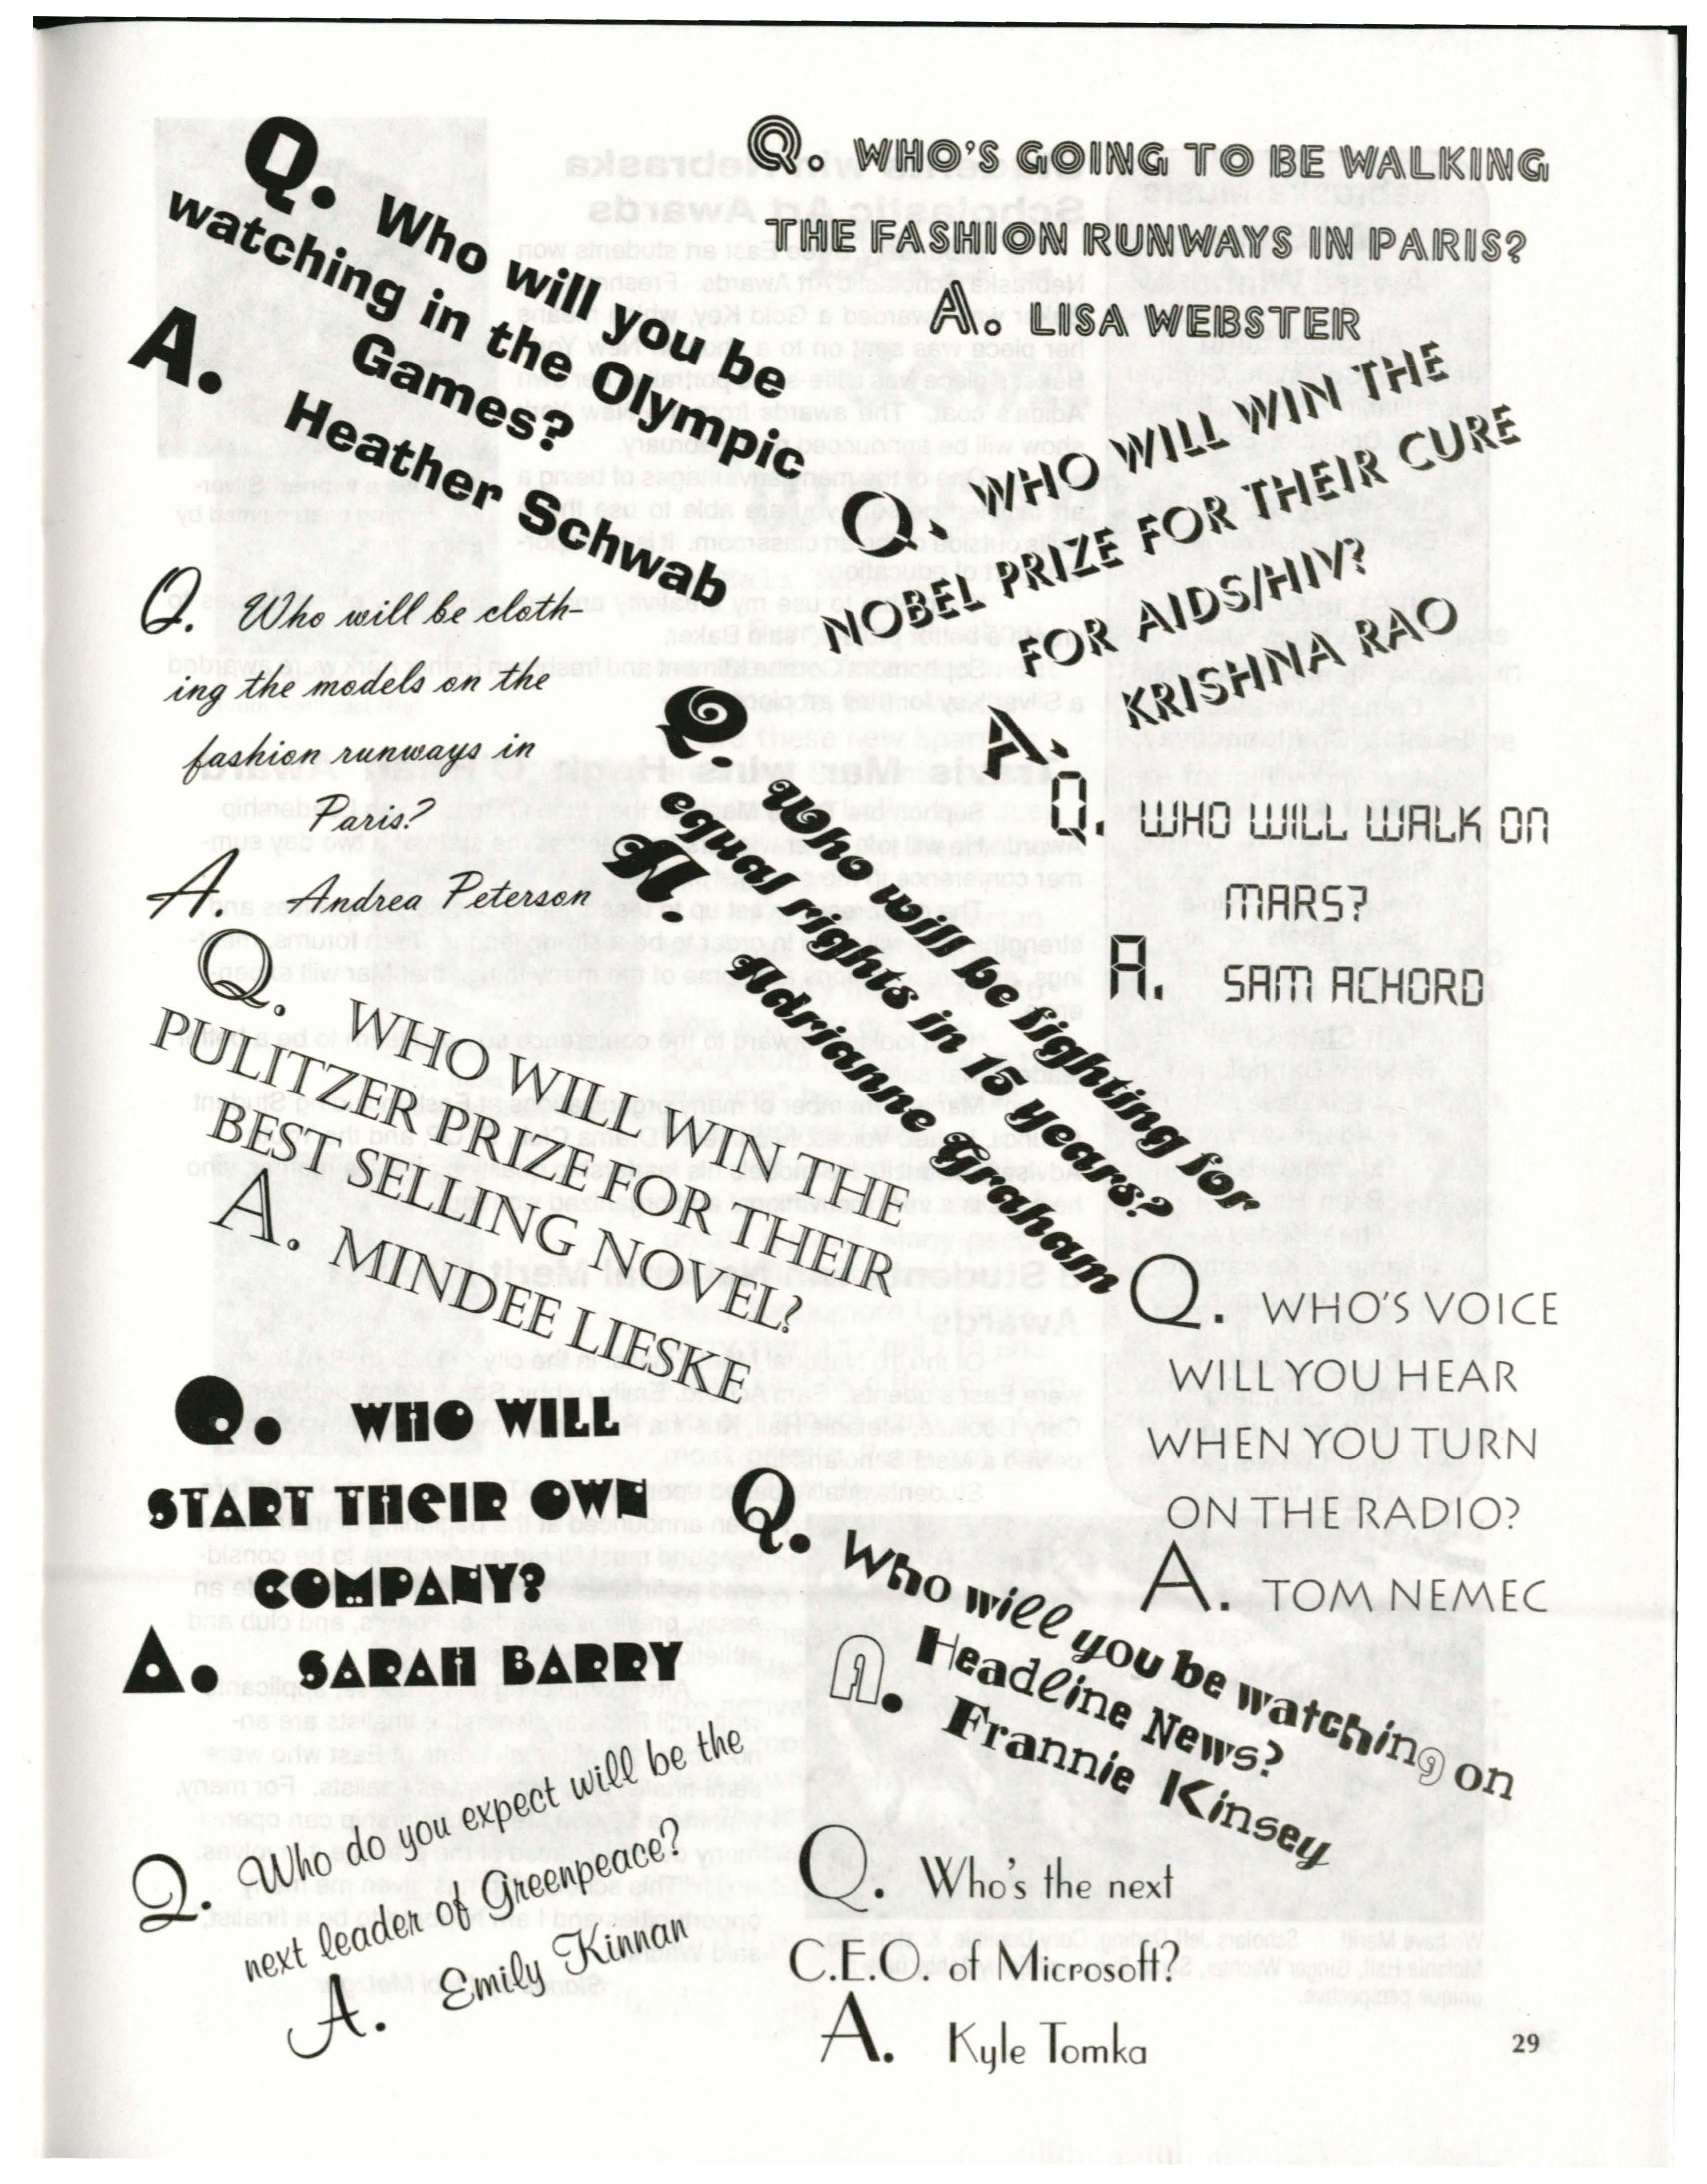 Q. Who will you be
watching in the Olympic
Games?
A. Heather Schwab
Q. WHO'S GOING TO BE WALKING
THE FASHION RUNWAYS IN PARIS?
A. LISA WEBSTER
Q. WHO WILL WIN THE
NOBEL PRIZE FOR THEIR CURE
FOR AIDS/HIV?
A. KRISHNA RAO
Q. Who will be cloth-
ing the models on the
fashion runways in
Paris?
A. Andrea Peterson
Q. Who will be fighting for
equal rights in 15 years?
A. Adrianne Graham
Q. WHO WILL WALK ON
MARS?
A. SAM ACHORD
Q. WHO WILL WIN THE
PULITZER PRIZE FOR THEIR
BEST SELLING NOVEL?
A. MINDEE LIESKE
Q. WHO'S VOICE
WILL YOU HEAR
WHEN YOU TURN
ON THE RADIO?
A. TOM NEMEC
Q. WHO WILL
START THEIR OWN
COMPANY?
A. SARAH BARRY
Q. Who will you be watching on
Headline News?
A. Frannie Kinsey
Q. Who do you expect will be the
next leader of Greenpeace?
A. Emily Kinnan
Q. Who's the next
C.E.O. of Microsoft?
A. Kyle Tomka
29